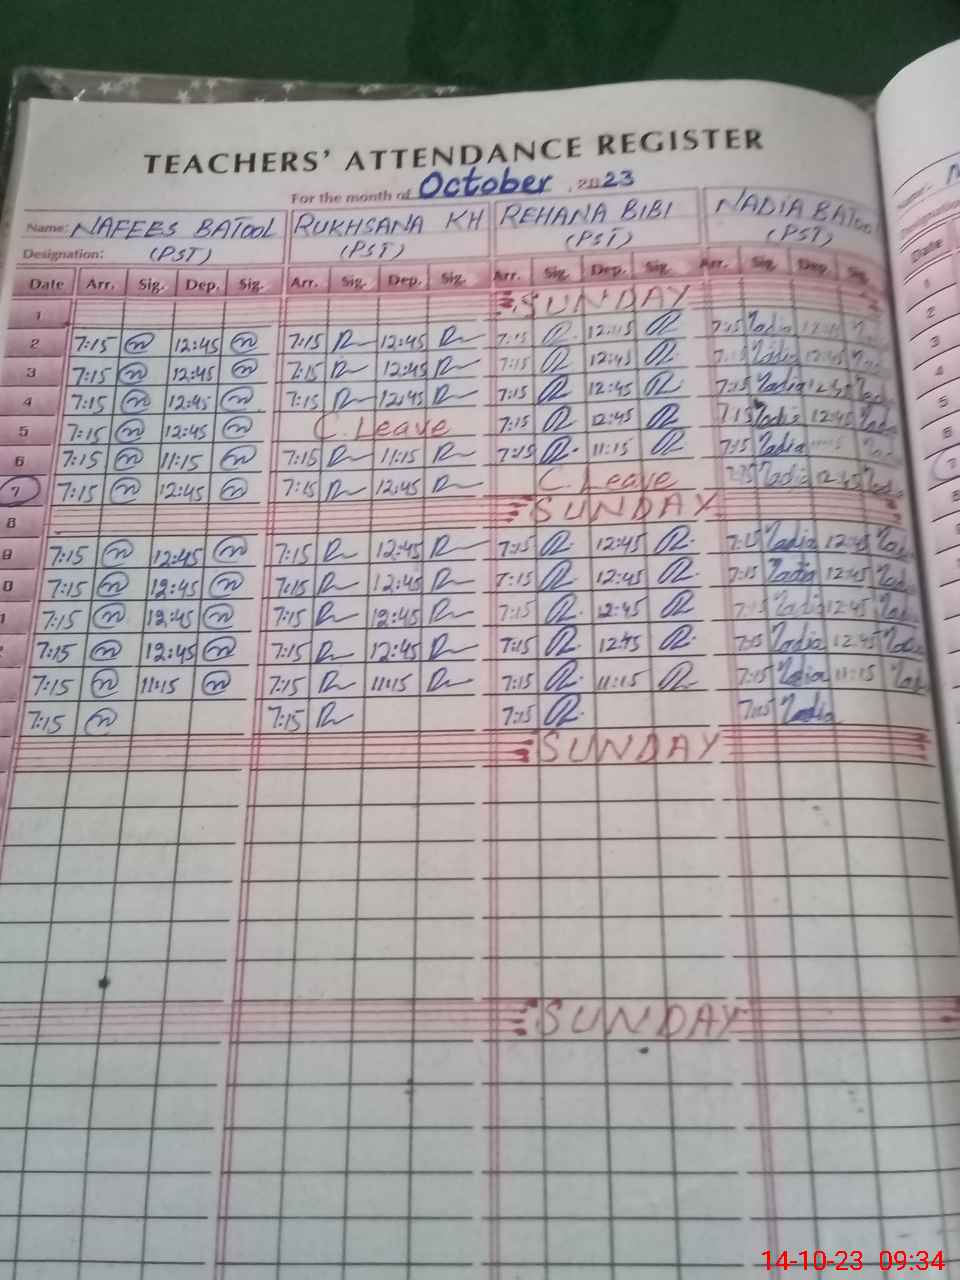 TEACHERS' ATTENDANCE REGISTER
For the month of October 2023
Name: NAFEES BATOOL RUKHSANA KH REHANA BIBI NADIA BATOOL
Designation: (PST) (PST) (PST) (PST)
Date Arr. Sig. Dep. Sig. Arr. Sig. Dep. Sig. Arr. Sig. Dep. Sig. Arr. Sig. Dep. Sig.
1 SUNDAY
2 7:15 12:45 7:15 12:45 7:15 7:15 Nadia
3 7:15 12:45 7:15 12:45 7:15 12:45 7:15 Nadia 12:45
4 7:15 12:45 7:15 12:45 7:15 12:45 7:15 Nadia 12:45
5 7:15 12:45 C. Leave 7:15 12:45 7:15 Nadia 12:45
6 7:15 11:15 7:15 11:15 7:15 11:15 7:15 Nadia
7 7:15 12:45 7:15 12:45 C. Leave 7:15 Nadia 12:45
8 SUNDAY
9 7:15 12:45 7:15 12:45 7:15 12:45 7:15 Nadia 12:45
0 7:15 12:45 7:15 12:45 7:15 12:45 7:15 Nadia 12:45
1 7:15 12:45 7:15 12:45 7:15 12:45 7:15 Nadia 12:45
7:15 12:45 7:15 12:45 7:15 12:45 7:15 Nadia 12:45
7:15 11:15 7:15 11:15 7:15 11:15 7:15 Nadia 11:15
7:15 7:15 7:15 7:15 Nadia
SUNDAY
SUNDAY
Date
1
2
3
4
5
6
7
8
14-10-23 09:34